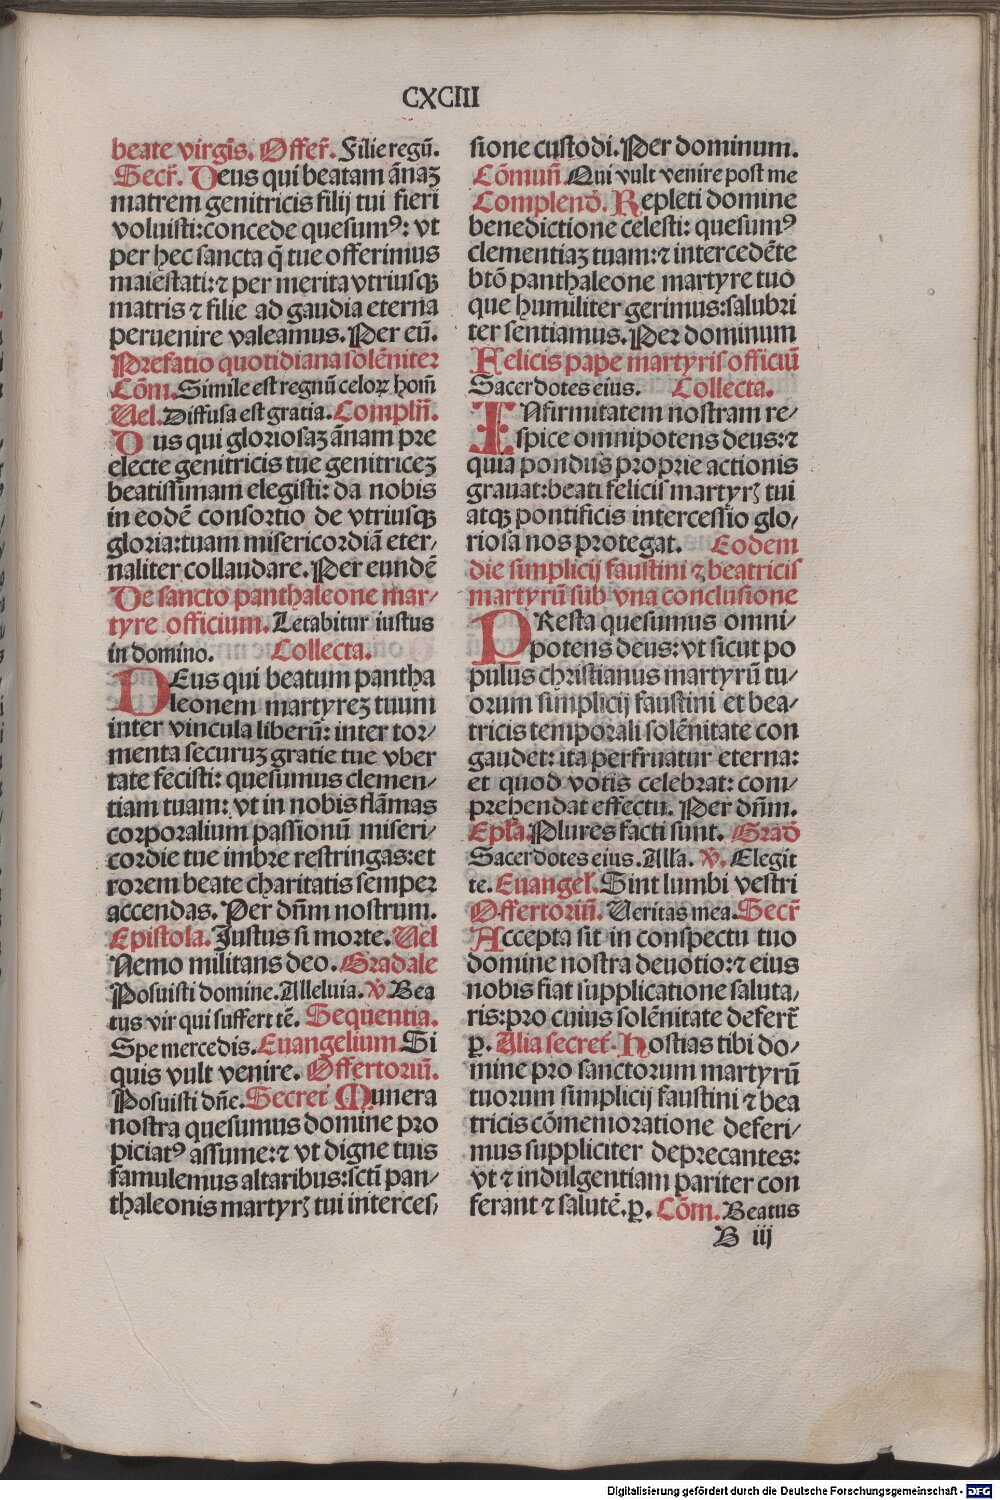 CXCIII
beate virgīs. Offer̄. Filie regū.
Secr̄. Deus qui beatam ānaʒ
matrem genitricis filij tui fieri
voluisti:concede quesumꝰ: vt
per hec sancta q̄ tue offerimus
maiestati:⁊ per merita vtriusqʒ
matris ⁊ filie ad gaudia eterna
peruenire valeamus. Per eū.
Prefatio quotidiana solēniter
Cōm. Simile est regnū celoꝝ hoīn̄
Uel. Diffusa est gratia. Complīn̄.
Dus qui gloriosaʒ ānam pre
electe genitricis tue genitriceʒ
beatissimam elegisti: da nobis
in eodē consortio de vtriusqʒ
gloria:tuam misericordiā eter/
naliter collaudare. Per eundē
De sancto panthaleone mar/
tyre officium. Letabitur iustus
in domino. Collecta.
DEus qui beatum pantha
leonem martyreʒ tuum
inter vincula liberū: inter tor/
menta securuʒ gratie tue vber
tate fecisti: quesumus clemen/
tiam tuam: vt in nobis flāmas
corporalium passionū miseri/
cordie tue imbre restringas:et
rorem beate charitatis semper
accendas. Per dn̄m nostrum.
Epistola. Justus si morte. Uel
Nemo militans deo. Gradale
Posuisti domine. Alleluia. ℣. Bea
tus vir qui suffert tē. Sequentia.
Spe mercedis. Euangelium Si
quis vult venire. Offertoriū.
Posuisti dn̄e. Secret̄ Munera
nostra quesumus domine pro
piciatꝰ assume:⁊ vt digne tuis
famulemus altaribus:scti̅ pan/
thaleonis martyrꝭ tui interces/
sione custodi. Per dominum.
Cōmun̄ Qui vult venire post me
Complend̄. Repleti domine
benedictione celesti: quesumꝰ
clementiaʒ tuam:⁊ intercedēte
btō panthaleone martyre tuo
que humiliter gerimus:salubri
ter sentiamus. Per dominum
Felicis pape martyris officiū
Sacerdotes eius. Collecta.
INfirmitatem nostram re/
spice omnipotens deus:⁊
quia pondus proprie actionis
grauat:beati felicis martyrꝭ tui
atqʒ pontificis intercessio glo/
riosa nos protegat. Eodem
die simplicij faustini ⁊ beatricis
martyrū sub vna conclusione
PResta quesumus omni/
potens deus: vt sicut po
pulus christianus martyrū tu/
orum simplicij faustini et bea/
tricis temporali solēnitate con
gaudet: ita perfruatur eterna:
et quod votis celebrat: com/
prehendat effectu. Per dn̄m.
Epl̄a. Plures facti sunt. Grad̄
Sacerdotes eius. All̄a. ℣. Elegit
te. Euangel̄. Sint lumbi vestri
Offertoriū. Ueritas mea. Secr̄
Accepta sit in conspectu tuo
domine nostra deuotio:⁊ eius
nobis fiat supplicatione saluta/
ris:pro cuius solēnitate defert̄
ꝑ. Alia secret̄. Hostias tibi do/
mine pro sanctorum martyrū
tuorum simplicij faustini ⁊ bea
tricis cōmemoratione deferi/
mus suppliciter deprecantes:
vt ⁊ indulgentiam pariter con
ferant ⁊ salutē. ꝑ. Cōm. Beatus
B iij
Digitalisierung gefördert durch die Deutsche Forschungsgemeinschaft - DFG